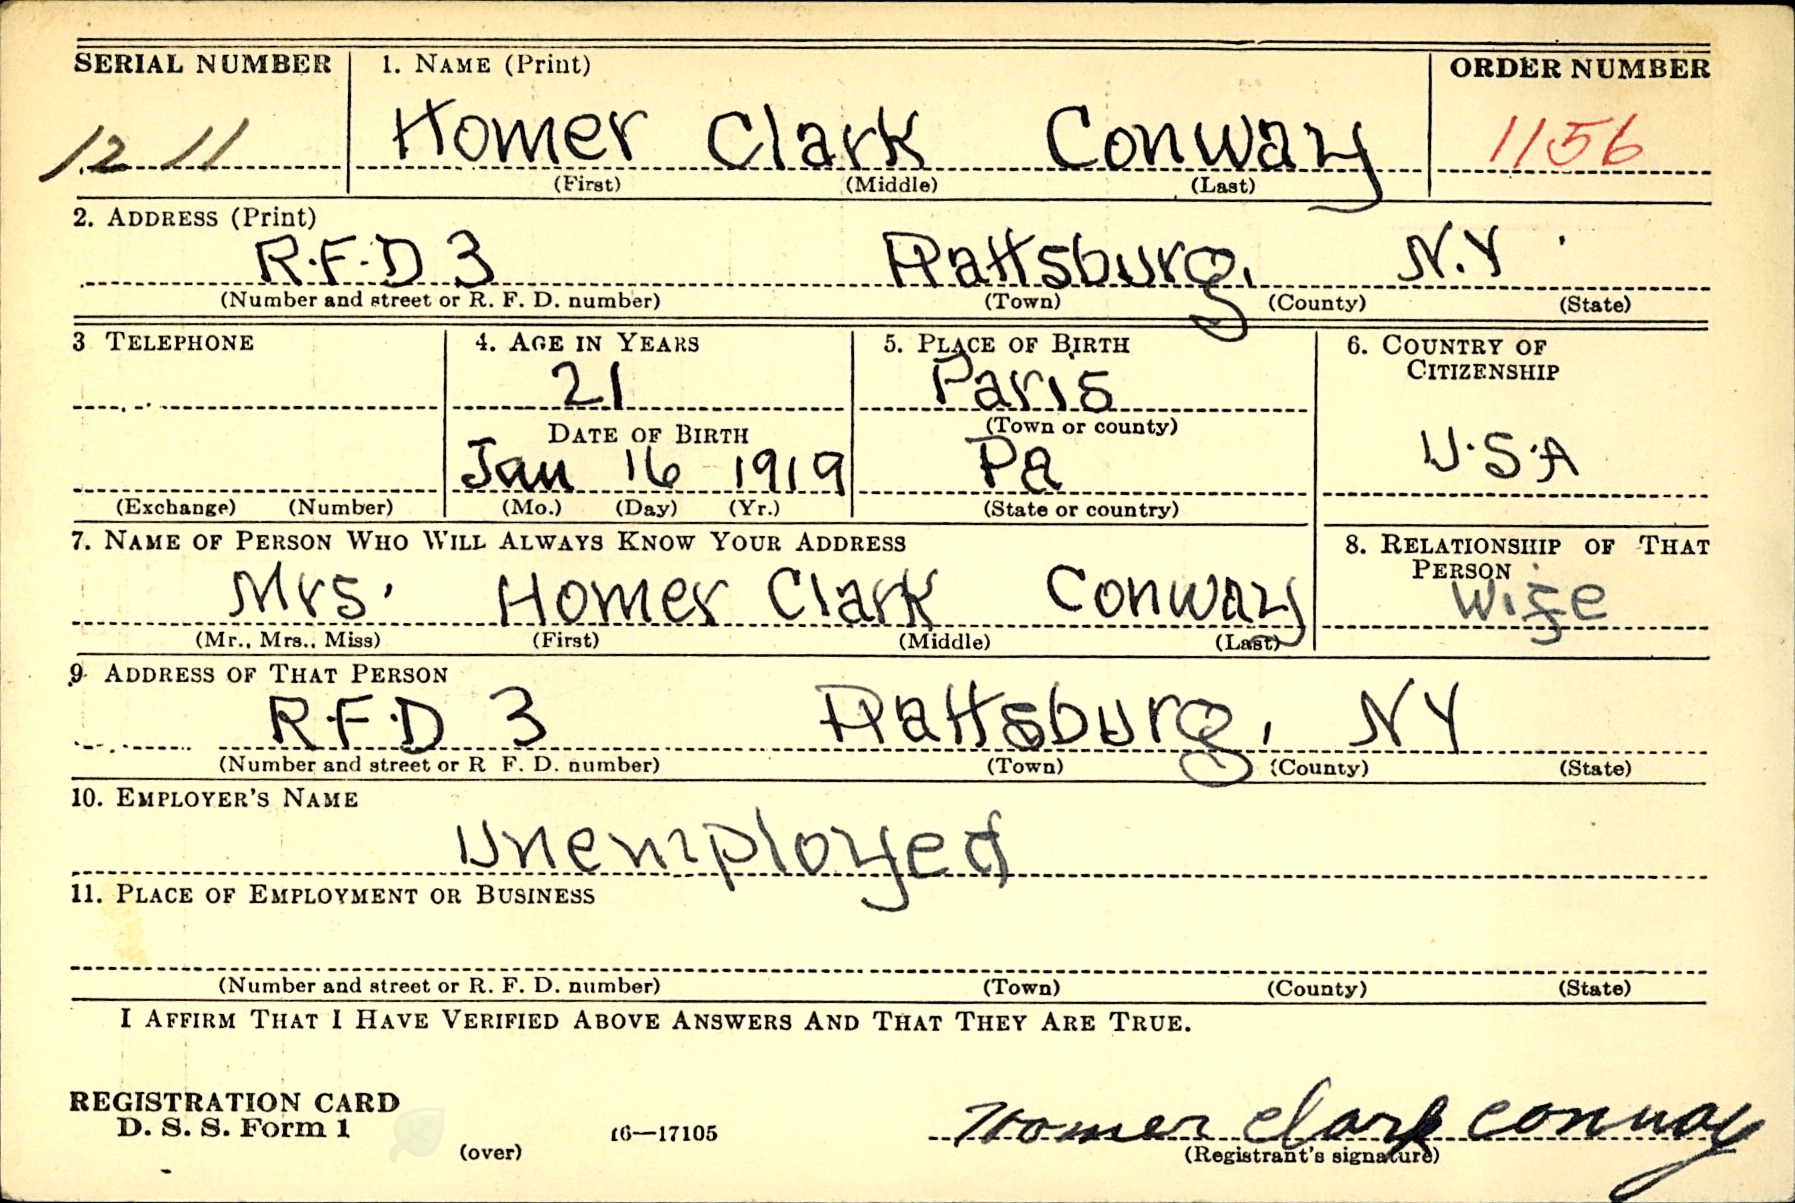 SERIAL NUMBER 1. NAME (Print) ORDER NUMBER
12 11 Homer Clark Conway 1156
(First) (Middle) (Last)
2. ADDRESS (Print)
R.F.D 3 Prattsburg, N.Y
(Number and street or R. F. D. number) (Town) (County) (State)
3 TELEPHONE 4. AGE IN YEARS 5. PLACE OF BIRTH 6. COUNTRY OF CITIZENSHIP
21 Paris
DATE OF BIRTH (Town or county)
Jan 16 1919 Pa U.S.A
(Exchange) (Number) (Mo.) (Day) (Yr.) (State or country)
7. NAME OF PERSON WHO WILL ALWAYS KNOW YOUR ADDRESS 8. RELATIONSHIP OF THAT PERSON
Mrs. Homer Clark Conway Wife
(Mr., Mrs., Miss) (First) (Middle) (Last)
9. ADDRESS OF THAT PERSON
R.F.D 3 Prattsburg, NY
(Number and street or R F. D. number) (Town) (County) (State)
10. EMPLOYER'S NAME
Unemployed
11. PLACE OF EMPLOYMENT OR BUSINESS
(Number and street or R. F. D. number) (Town) (County) (State)
I AFFIRM THAT I HAVE VERIFIED ABOVE ANSWERS AND THAT THEY ARE TRUE.
REGISTRATION CARD
D. S. S. Form 1
(over) 16—17105
Homer Clark Conway
(Registrant's signature)